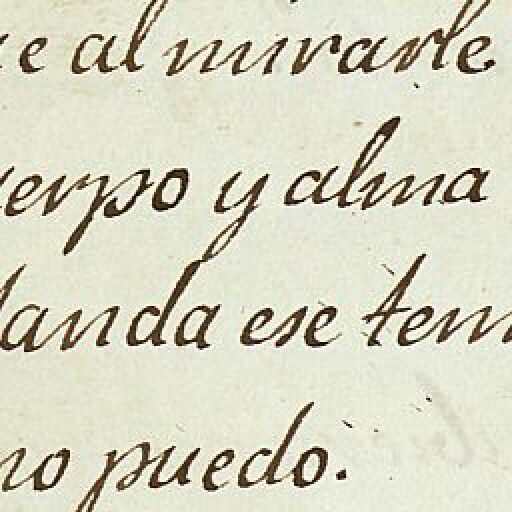 e al mirarle
erpo y alma
landa ese tem
no puedo.